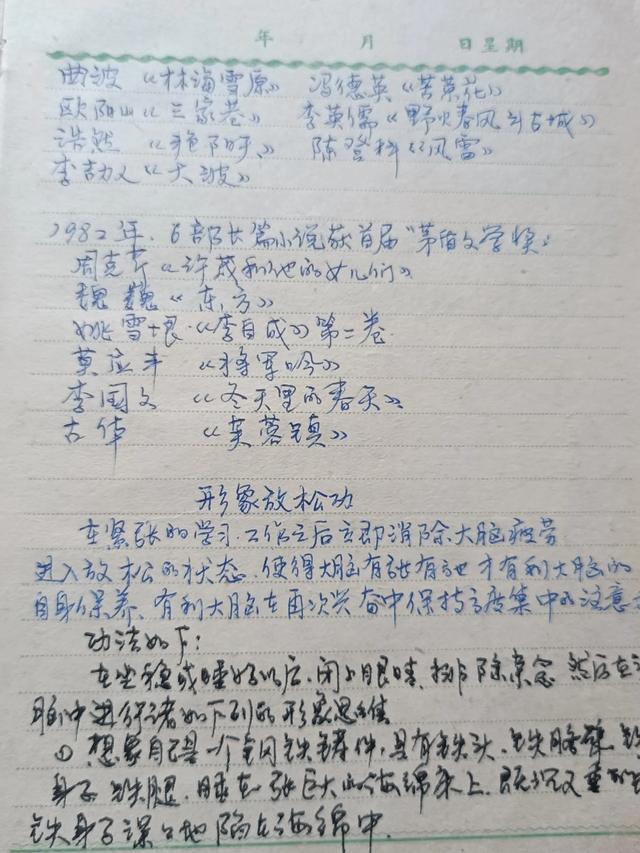 年 月 日星期
曲波《林海雪原》 冯德英《苦菜花》
欧阳山《三家巷》 李英儒《野火春风斗古城》
浩然《艳阳天》 陈登科《风雷》
李劼人《大波》
1982年.6部长篇小说获首届“茅盾文学奖:
周克芹《许茂和他的女儿们》
魏巍《东方》
姚雪垠《李自成》第二卷.
莫应丰 《将军吟》
李国文 《冬天里的春天》
古华 《芙蓉镇》
形象放松功
在紧张的学习.工作之后立即消除大脑疲劳
进入放松的状态.使得大脑有张有弛才有利大脑的
自身保养、有利大脑在再次兴奋中保持高度集中的注意
功法如下:
在坐稳或睡好以后.闭上眼睛.排除杂念 然后在
脑中进行诸如下列的形象思维
① 想象自己是一个钢铁铸件,具有铁头、铁胳臂、铁
身子 铁腿.睡在一张巨大的海绵床上.既沉又重的
铁身子深深地陷在海绵中.